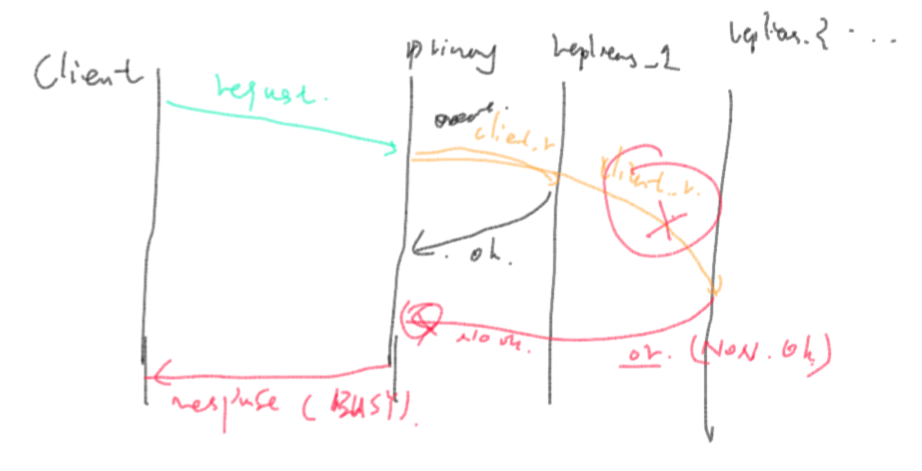 Client
primary
replicas_1
replicas_2 ...
request.
client_r
client_r.
ok.
No ok.
or. (NON. Ok)
response (BUSY).